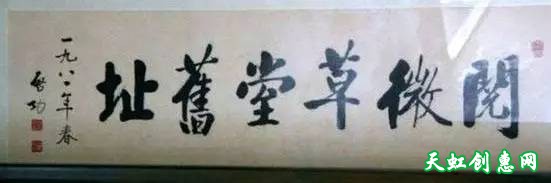 閱微草堂舊址
一九八八年春
啓功
天虹创惠网